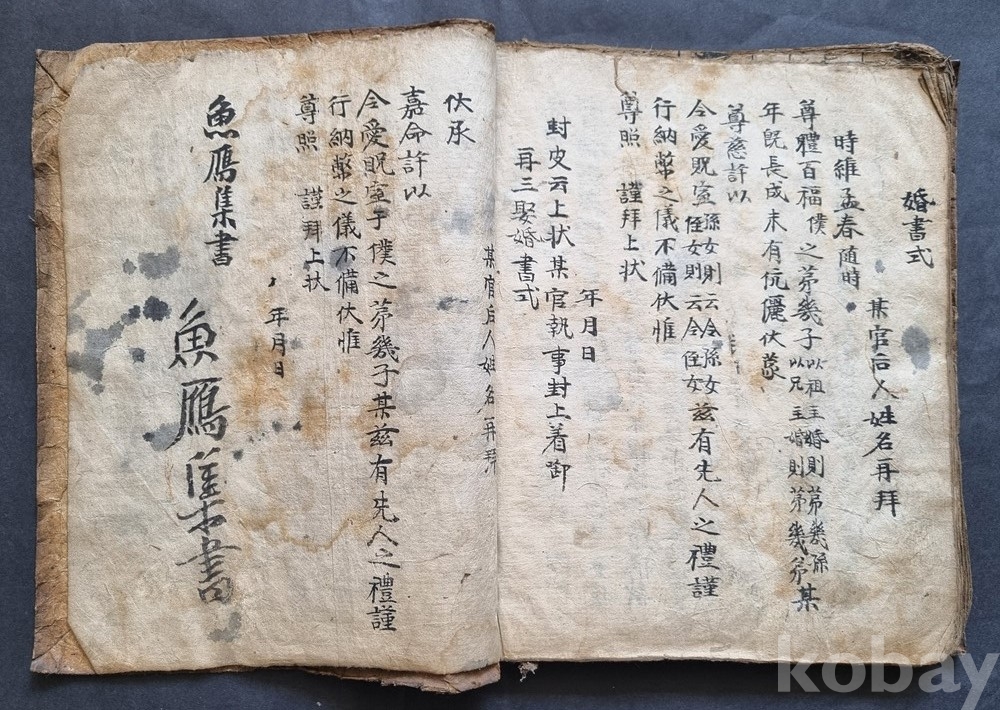 婚書式
某官后人姓名再拜
時維孟春隨時
尊禮百福僕之苐幾子以祖主婚則苐幾孫以兄主婚則苐幾弟某
年旣長成未有伉儷伏蒙
尊慈許以
令愛貺室孫女則云令孫女侄女則云令侄女玆有先人之禮謹
行納幣之儀不備伏惟
尊照 謹拜上狀
年月日
封皮云上狀某官執事封上着啣
再三娶婚書式
某官后人姓名再拜
伏承
嘉命許以
令愛貺室于僕之苐幾子某玆有先人之禮謹
行納幣之儀不備伏惟
尊照 謹拜上狀
年月日
魚鴈集書
魚鴈集書
kobay